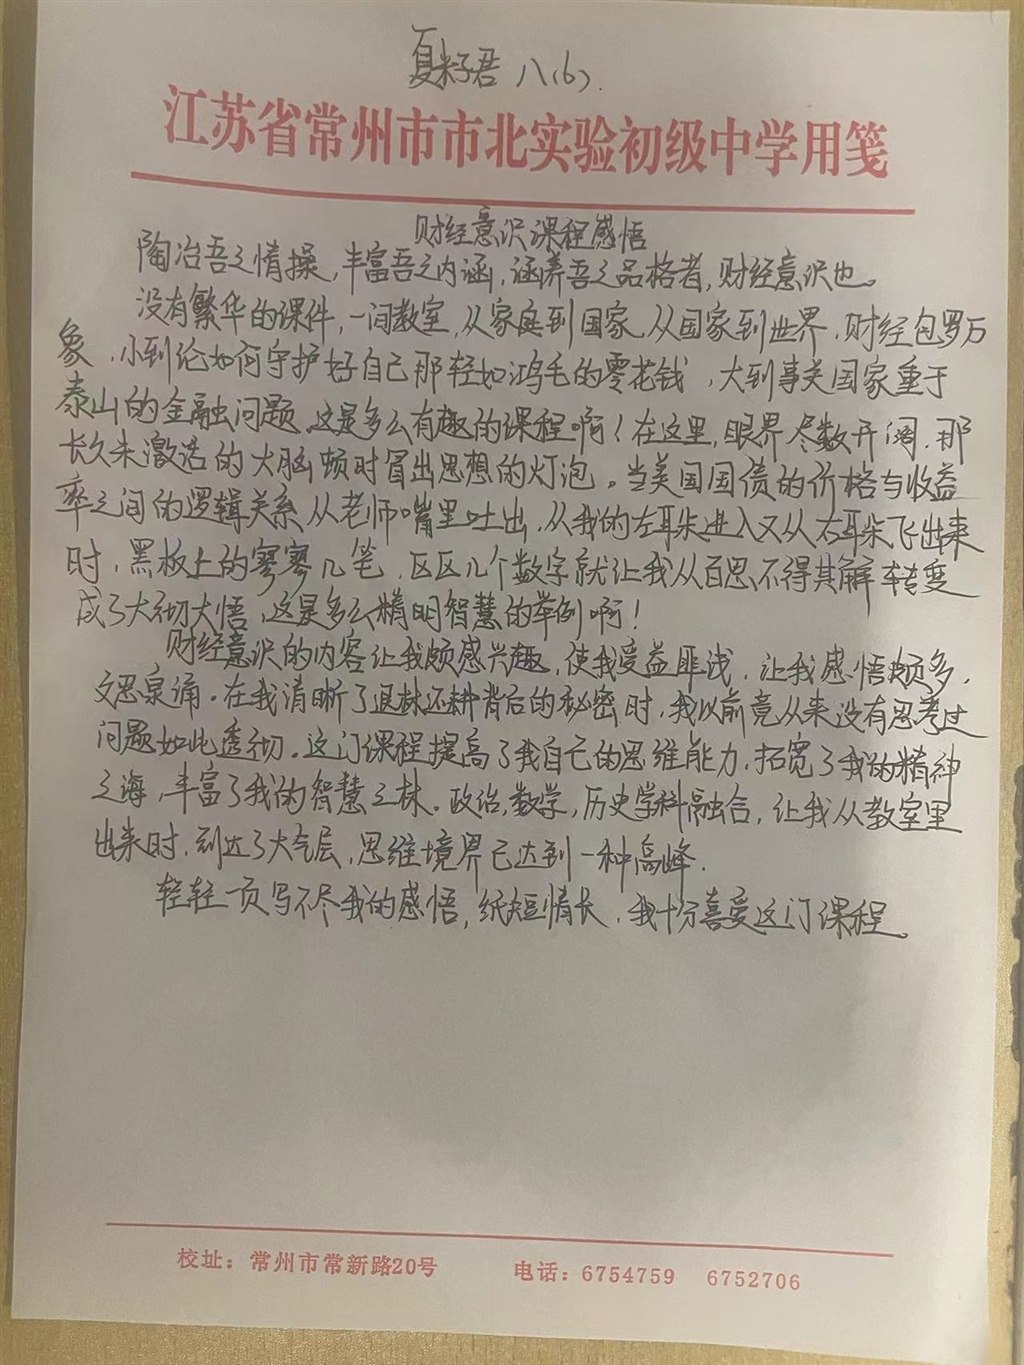 夏籽君 八(6).
江苏省常州市市北实验初级中学用笺
财经意识课程感悟
陶冶吾之情操,丰富吾之内涵,涵养吾之品格者,财经意识也。
没有繁华的课件,一间教室,从家庭到国家,从国家到世界,财经包罗万
象,小到论如何守护好自己那轻如鸿毛的零花钱,大到事关国家重于
泰山的金融问题。这是多么有趣的课程啊!在这里,眼界尽数开阔,那
长久未激活的大脑顿时冒出思想的灯泡。当美国国债的价格与收益
率之间的逻辑关系从老师嘴里吐出,从我的左耳朵进入又从右耳朵飞出来
时,黑板上的寥寥几笔,区区几个数字就让我从百思不得其解转变
成了大彻大悟,这是多么精明智慧的举例啊!
财经意识的内容让我颇感兴趣,使我受益匪浅,让我感悟颇多,
文思泉涌。在我清晰了退林还耕背后的秘密时,我以前竟从来没有思考过
问题如此透彻。这门课程提高了我自己的思维能力,拓宽了我的精神
之海,丰富了我的智慧之林。政治,数学,历史学科融合,让我从教室里
出来时,到达了大气层,思维境界已达到一种高峰.
轻轻一页写不尽我的感悟,纸短情长,我十分喜爱这门课程。
校址：常州市常新路20号 电话：6754759 6752706